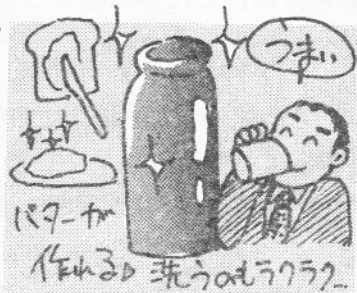 うまい
バターが
作れる♪ 洗うのもラクラク…